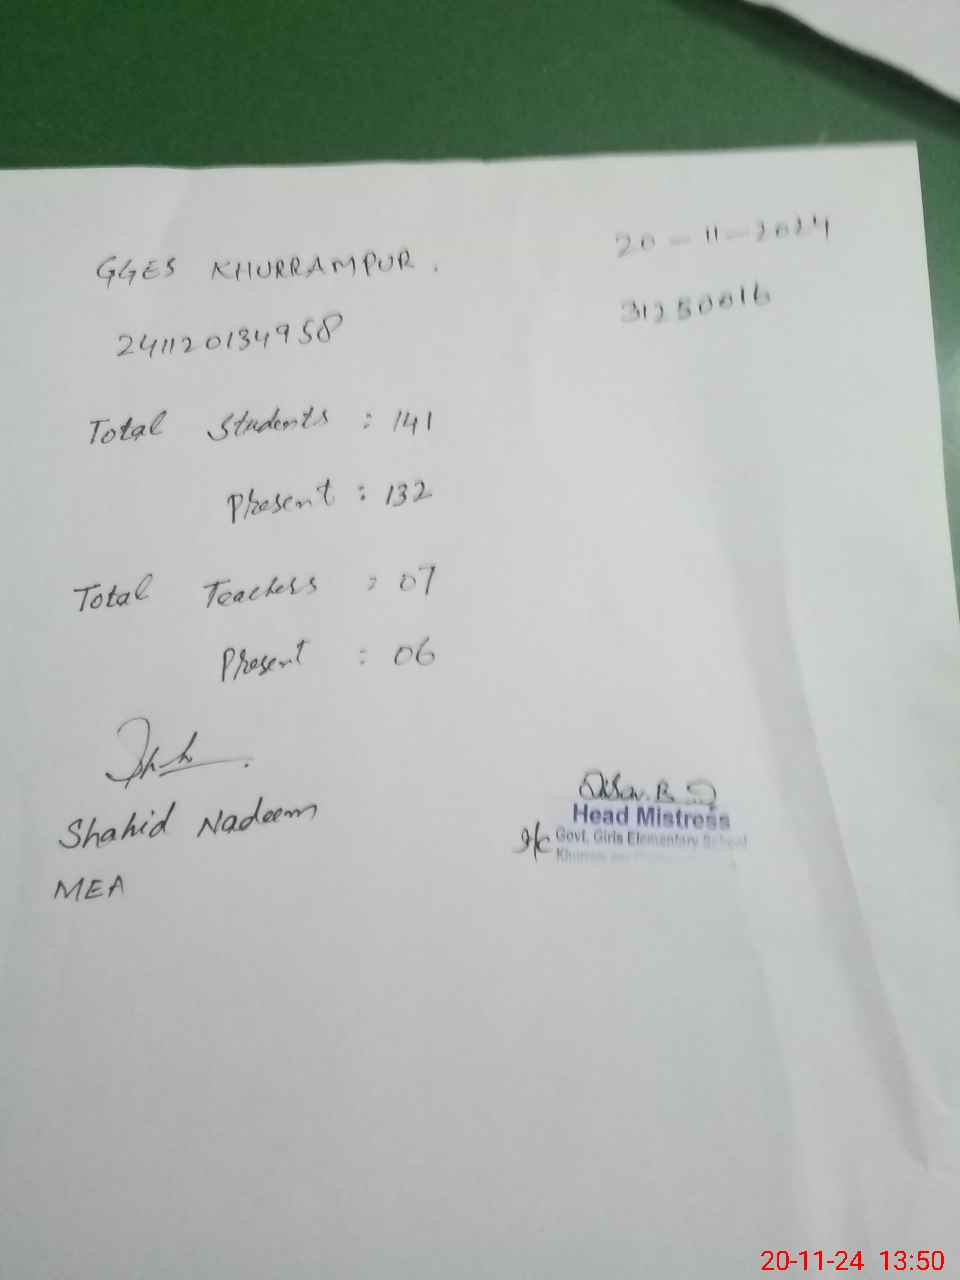 GGES KHURRAMPUR.
20-11-2024
241120134958
31250016
Total Students : 141
Present : 132
Total Teachers : 07
Present : 06
Shahid Nadeem
MEA
Head Mistress
I/c Govt. Girls Elementary School
20-11-24 13:50